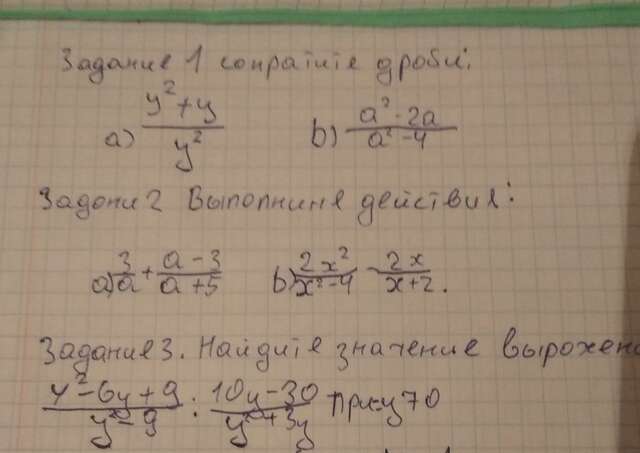 Задание 1 сократите дроби:
a) (y²+y)/y² b) (a²-2a)/(a²-4)
Задани 2 Выполнине действия:
a) 3/a + (a-3)/(a+5) b) 2x²/(x²-4) - 2x/(x+2).
Задание 3. Найдите значение выражен
(y²-6y+9)/(y²-9) : (10y-30)/(y²+3y) при y 70